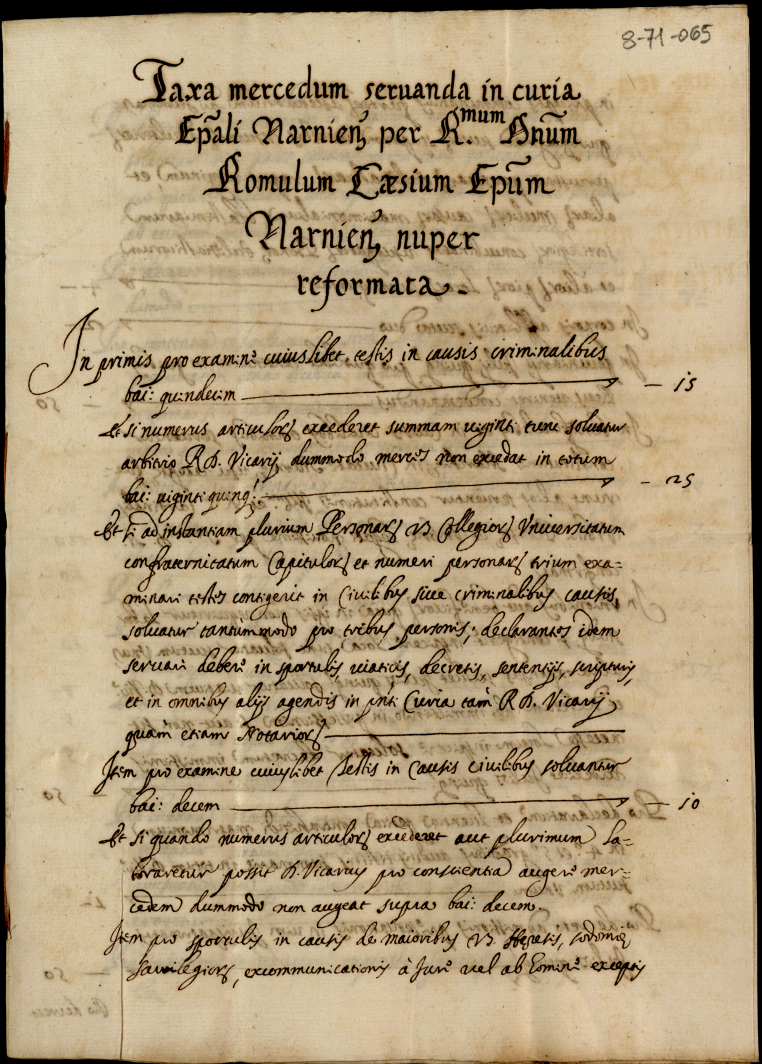 8-71-065
Taxa mercedum seruanda in curia
Ep̃ali Narnieñ per R.mum Dñum
Romulum Cæsium Ep̃um
Narnieñ nuper
reformata.
In primis pro examine cuiuslibet testis in causis criminalibus
bai: quindecim — 15
Et si numerus articulorꝝ excederet summam uiginti tunc soluatur
arbitrio R.D. Vicarij dummodo merces non excedat in totum
bai: uiginti quinq; — 25
Et si ad instantiam plurium Personarꝝ Collegiorꝝ Vniuersitatum
confraternitatum Capitulorꝝ et numeri personarꝝ trium exa-
minari testes contigerit in Ciuilibus siue criminalibus causis,
soluatur tantummodo pro tribus personis; declarantes idem
seruari debere in sportulis, uiaticis, decretis, sententijs, scripturis,
et in omnibus alijs agendis in pñti Curia tam R.D. Vicarij
quam etiam Notariorꝝ
Item pro examine cuiuslibet Testis in Causis ciuilibus soluantur
bai: decem — 10
Et si quando numerus articulorꝝ excederet aut plurimum la-
boraretur possit D. Vicarius pro conscientia augere mer-
cedem dummodo non augeat supra bai: decem.
Item pro sportulis in causis de maioribus Heresis, sodomię
sacrilegiorꝝ, excommunicationis à Jure uel ab homine exceptis